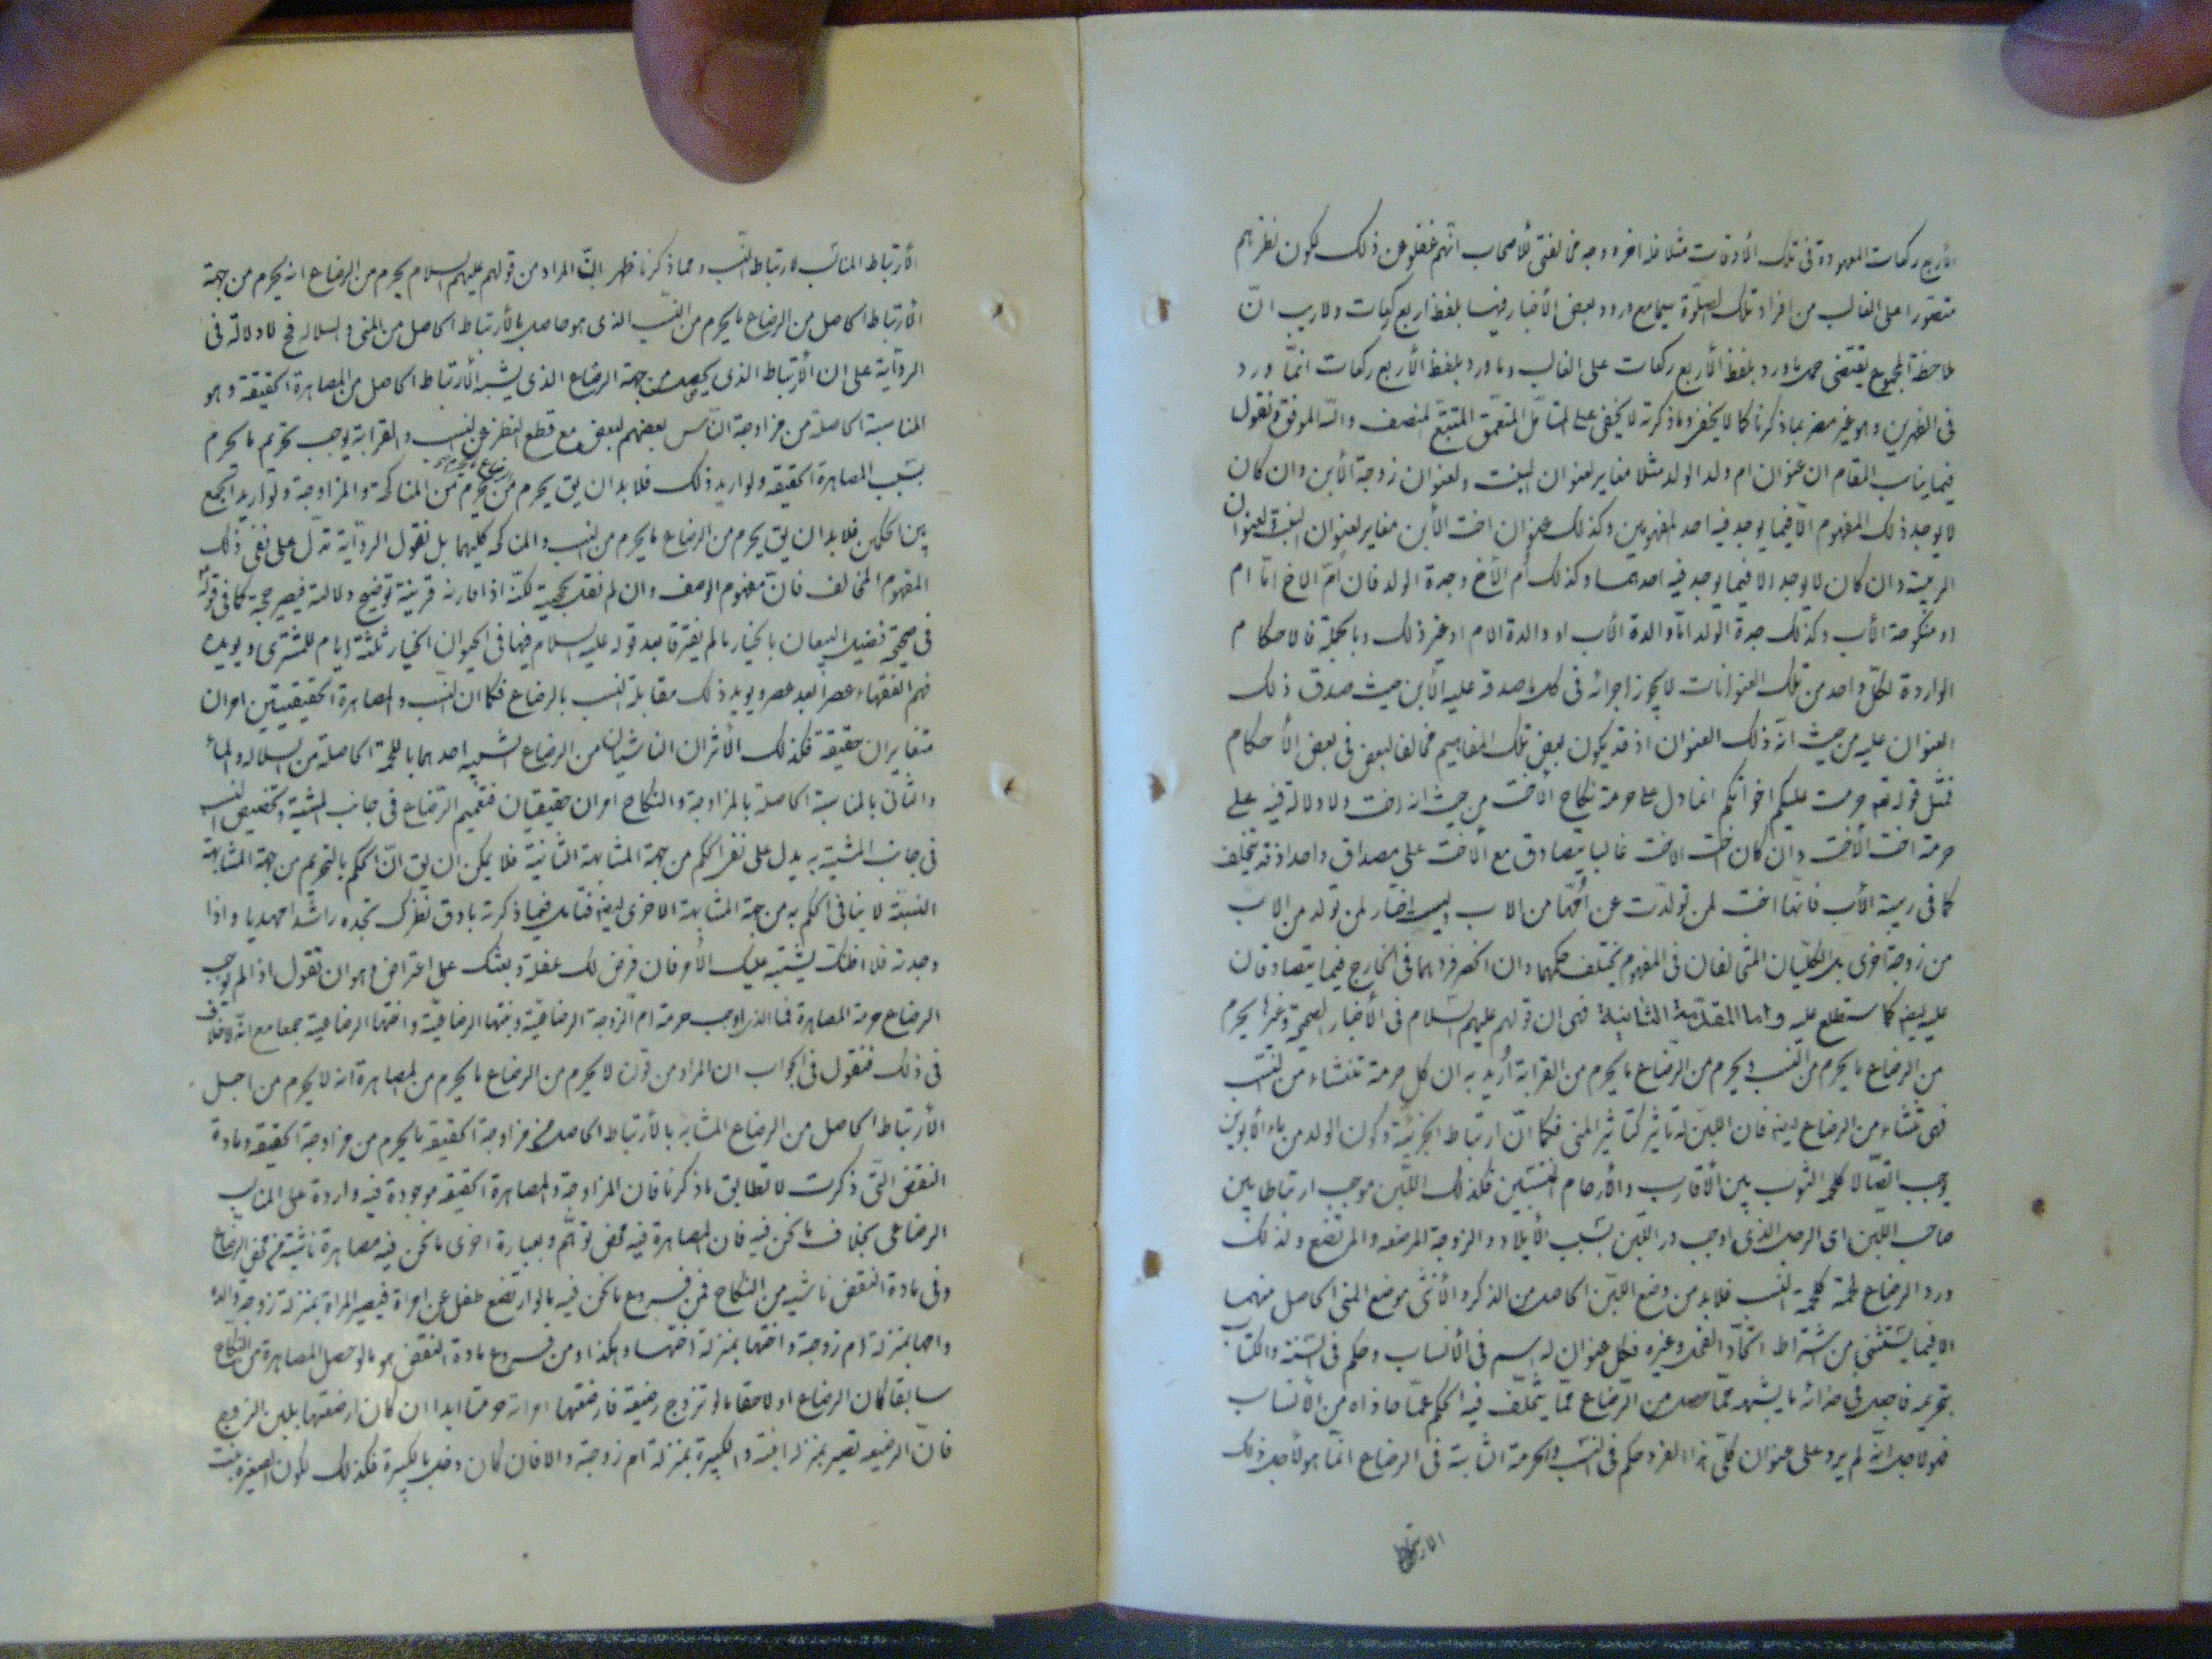 الأربع ركعات المعهودة فى تلك الأوقات مثلا فلا اخره وجه مخالفتى للأصحاب انهم غفلوا عن ذلك لكون نظرهم
متصورا على الغالب من افراد تلك الصلوة سيما مع ورود بعض الأخبار فيها بلفظ اربع ركعات ولا ريب انّ
ملاحظة المجموع يقتضى حمل ما ورد بلفظ الأربع ركعات على الغالب وما ورد بلفظ الأربع ركعات انمّا ورد
فى الظهرين وهو غير مضر بما ذكرنا كما لا يخفى وما ذكرته لا يخفى على المتأمّل المتعمّق المتتبّع المنصف والله الموفق ونقول
فيما يناسب المقام ان عنوان ام ولد الولد مثلا مغاير لعنوان البنت ولعنوان زوجة الأبن وان كان
لا يوجد ذلك المفهوم الّا فيما يوجد فيه احد المفهومين وكذلك عنوان اخت الأبن مغاير لعنوان البنت ولعنوان
الربيبة وان كان لا يوجد الا فيما يوجد فيه احدهما وكذلك أم الأخ وجدة الولد فان امّ الاخ امّا ام
او منكوحة الأب وكذلك جدة الولد امّا والدة الأب او والدة الام او غير ذلك وبالجملة فالاحكام
الواردة لكلّ واحد من تلك العنوانات لا يجوز اجرائه فى كل ما صدق عليه الأبن حيث صدق ذلك
العنوان عليه من حيث انّه ذلك العنوان اذ قد يكون لبعض تلك المفاهيم مخالفا لبعض فى بعض الأحكام
فمثل قوله تعه حرمت عليكم اخواتكم انما دل على حرمة نكاح الأخت من حيث انه اخت ولا دلالة فيه على
حرمة اخت الأخت وان كان اخت الاخت غالبا يتصادق مع الأخت على مصداق واحد اذ قد يتخلف
كما فى ربيبة الأب فانهّا اخت لمن تولدت عن أمّها من الاب وليست اختا لمن تولد من الاب
من زوجة اخرى بل الكليّان المتخالفان فى المفهوم يختلف حكمهما وان انحصر فردهما فى الخارج فيما يتصادقان
عليه ايضه كما ستطلع عليه واما المقدّمة الثانية فهى ان قولهم عليهم السّلام فى الأخبار الصحيحة وغيرها يحرم
من الرضاع ما يحرم من النسب ويحرم من الرّضاع ما يحرم من القرابة أريد به ان كل حرمة تنشاء من النّسب
فهى تنشاء من الرضاع ايضه فان اللبن له تاثير كتاثير المنى فكما انّ ارتباط الجزئيّة وكون الولد من ماء الأبوين
يوجب اتصّالا كلحمة الثوب بين الأقارب والأرحام المنتسبين فكذلك اللّبن موجب ارتباطا بين
صاحب اللبن اى الرجل الذى اوجب درّ اللبن بسبب الأيلاد والزوجة المرضعه والمرتضع ولذلك
ورد الرضاع لحمة كلحمة النسب فلا بد من وضع اللبن الحاصل من الذكر والأنثى موضع المنى الحاصل منهما
الا فيما يستثنى من اشتراط اتحّاد الفحل وغيره فكل عنوان له اسم فى الأنساب وحكم فى السّنه والكتاب
بتحريمه فاجعل فى حزائه ما يشبهه ممّا حصل من الرّضاع ممّا يتخلّف فيه الحكم عمّا حاذاه من الأنساب
فهو لاجل انهّ لم يرد على عنوان كلّى هذا الفرد حكم فى النسب والحرمة الثابتة فى الرضاع انمّا هو لأجل ذلك
الارتباط
الأرتباط المناسب لارتباط النّسب ومما ذكرنا ظهر ان المراد من قولهم عليهم السلام يحرم من الرضاع انه يحرم من جهة
الأرتباط الحاصل من الرضاع ما يحرم من النّسب الذى هو حاصل بالأرتباط الحاصل من المنى والسلاله فح لا دلالة فى
الروّاية على ان الأرتباط الذى يحصل من جهة الرضاع الذى يشبه الأرتباط الحاصل من المصاهرة الحقيقة وهو
المناسبة الحاصلة من مزاوجة النّاس بعضهم لبعض مع قطع النظر عن النسب والقرابة يوجب تحريم ما يحرم
بسبب المصاهرة الحقيقه ولو اريد ذلك فلا بد ان يق يحرم من الرضاع ما يحرم من المناكحة والمزاوجة ولو اريد الجمع
بين الحكمين فلا بد ان يق يحرم من الرضاع ما يحرم من النسب والمناكحه كليهما بل نقول الروّاية تدّل على نفى ذلك
المفهوم المخالف فانّ مفهوم الوصف وان لم نقل بحجية لكنّه اذا قارنه قرينة توضح دلالته فيصير حجة كما فى قوله
فى صحيحة فضيل البيعان بالخيار ما لم يفترقا بعد قوله عليه السلام فيها فى الحيوان الخيار ثلثة ايام للمشترى ويؤيده
فهم الفقهاء عصراً بعد عصر ويؤيد ذلك مقابلة النسب بالرضاع فكما ان النّسب والمصاهرة الحقيقيتين امران
متغايران حقيقة فكذلك الأثران الناشيان من الرضاع الشبيه احدهما باللحمة الحاصلة من السلاله والماء
والثانى بالمناسبة الحاصلة بالمزاوجة والنكاح امران حقيقيان فتعميم الرّضاع فى جانب المشبه وتخصيص النسب
فى جانب المشبه به يدل على نفى الحكم من جهة المشابهة الثانية فلا يمكن ان يق انّ الحكم بالتحريم من جهة المشابهة
النسبيّة لا ينافى الحكم به من جهة المشابهة الاخرى ايضه فتامل فيما ذكرته بادق نظرك تجده راشدا مهديا واذا
وجدته فلا اظنك يشتبه عليك الأمر فان فرض لك غفلة وبعثك على اعتراض وهو ان تقول اذا لم يوجب
الرضاع حرمة المصاهرة فما الذى اوجب حرمة امّ الزّوجة الرضاعيّة وبنتها الرضاعيّة واختها الرضاعية جمعا مع انّه لا خلاف
فى ذلك فنقول فى الجواب ان المراد من قولنا لا يحرم من الرضاع ما يحرم من المصاهرة انه لا يحرم من اجل
الأرتباط الحاصل من الرضاع المشابه بالأرتباط الحاصل من مزاوجة الحقيقة ما يحرم من مزاوجة الحقيقه ومادة
النقض التّى ذكرت لا تطابق ما ذكرنا فان المزاوجة والمصاهرة الحقيقه موجودة فيه واردة على المناسب
الرضاعى بخلاف ما نحن فيه فان المصاهرة فيه محض توهّم وبعبارة اخرى ما نحن فيه مصاهرة ناشية من محض الرّضاع
وفى مادة النقض ناشيه من النكاح فمن فروع ما نحن فيه ما لو ارتضع طفل عن امراة فيصير المراة بمنزلة زوجة والده
وامها بمنزلة ام زوجة واختها بمنزلة اختها وهكذا ومن فروع مادة النقض هو ما لو حصل المصاهرة من النكاح
سابقا كان الرضاع او لاحقا ما لو تزوج رضيعة فارضعتها امراته حرمتا ابدا ان كان ارضعتها بلبن الزوج
فانّ الرضيعه تصير بمنزله ابنة والكبيرة بمنزلة ام زوجة والا فان كان دخل بالكبيرة فكذلك لكون الصغيره بنت